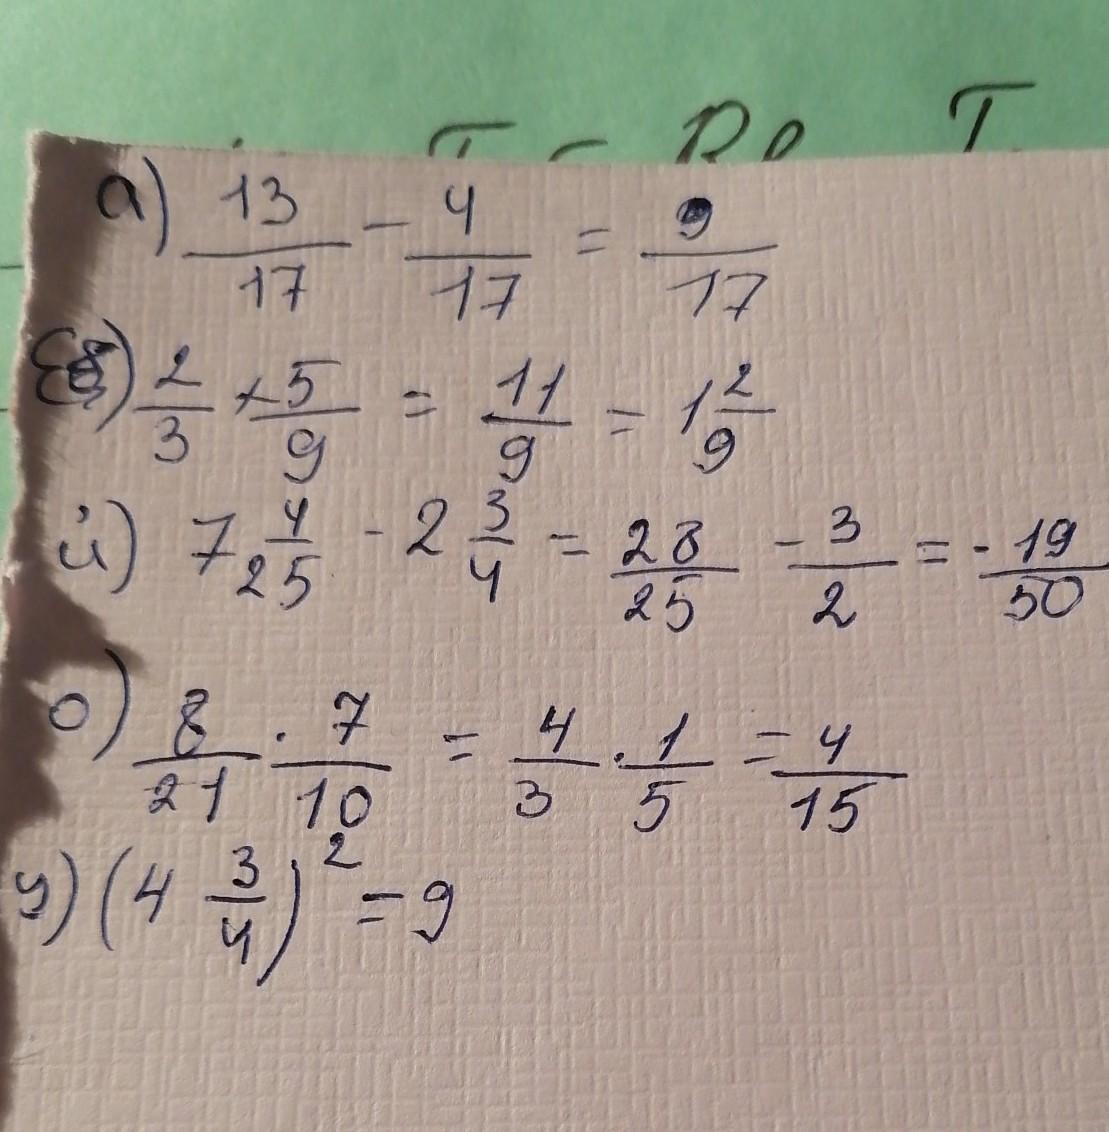 а) 13/17 - 4/17 = 9/17
в) 2/3 + 5/9 = 11/9 = 1 2/9
й) 7 4/25 - 2 3/4 = 28/25 - 3/2 = - 19/50
о) 8/21 · 7/10 = 4/3 · 1/5 = 4/15
у) (4 3/4)² = 9